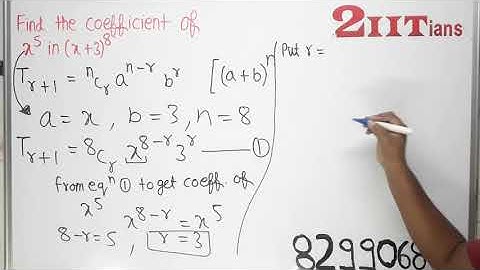 Find the coefficient of
x⁵ in (x+3)⁸
T_{r+1} = ⁿC_r a^{n-r} b^r [(a+b)ⁿ
a = x , b = 3 , n = 8
T_{r+1} = 8C_r x^{8-r} 3^r —— ①
from eqⁿ ① to get coeff. of
x⁵
x^{8-r} = x⁵
8-r=5, r = 3
Put r =
2IITians
8299068